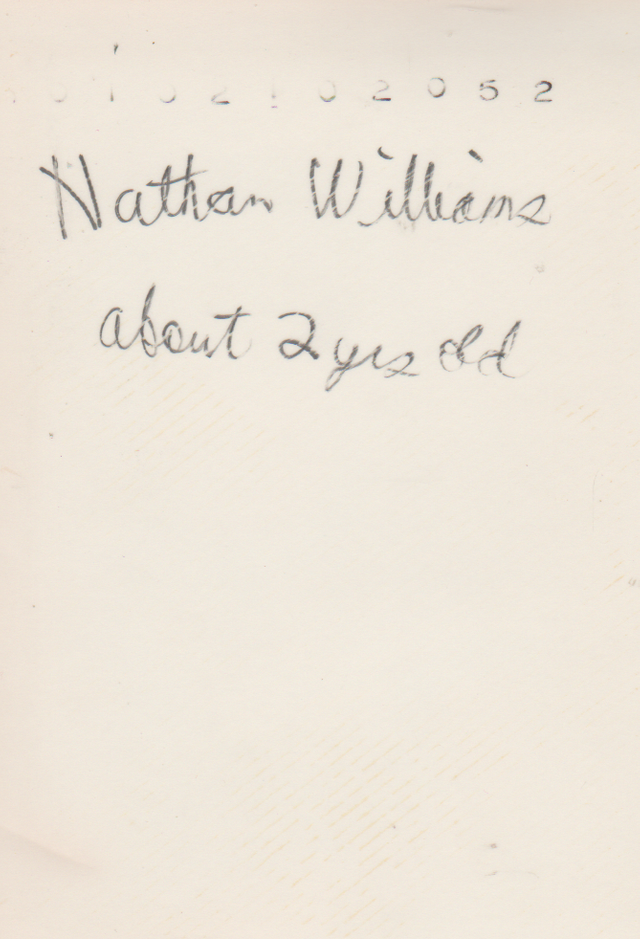 02102052
Nathan Williams
about 2 yrs old